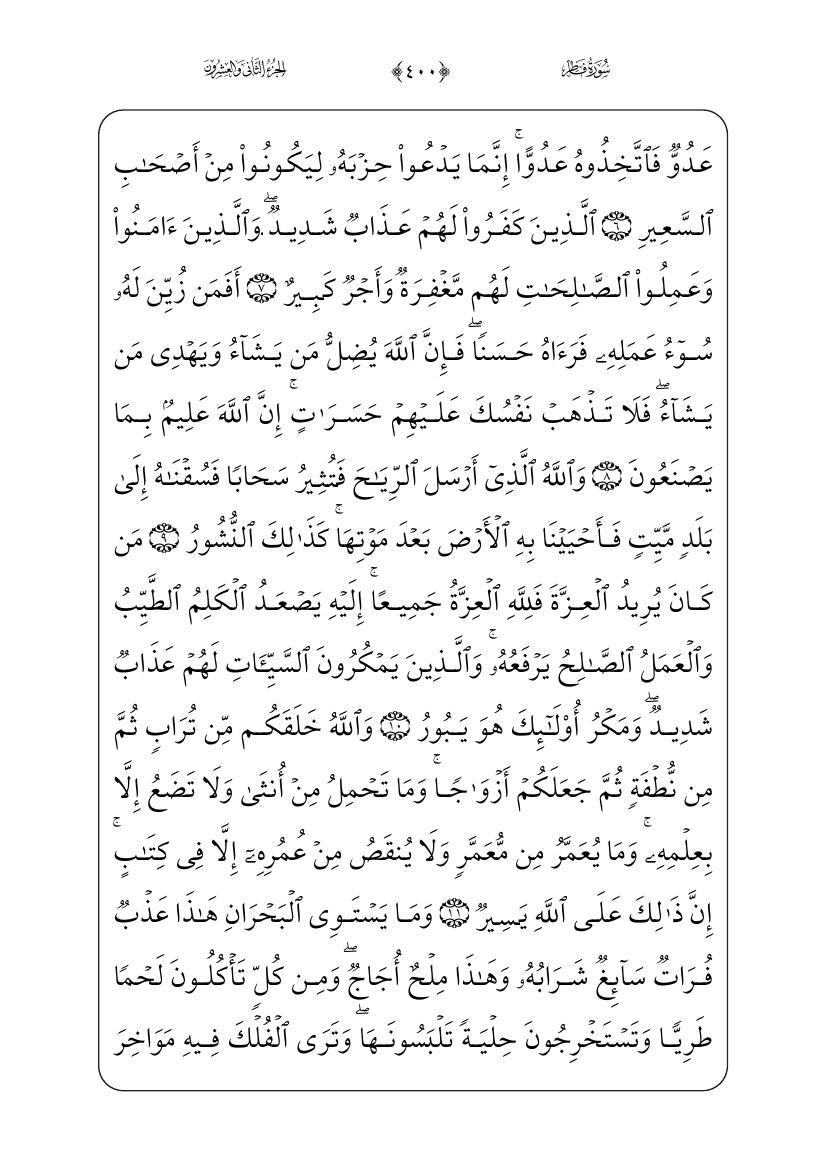 سُورَةُ فَاطِرٍ ﴿٤٠٠﴾ الجُزْءُ الثَّانِي وَالعِشْرُونَ
عَدُوࣱّ فَٱتَّخِذُوهُ عَدُوًّاۚ إِنَّمَا يَدۡعُواْ حِزۡبَهُۥ لِيَكُونُواْ مِنۡ أَصۡحَٰبِ
ٱلسَّعِيرِ ۝٦ ٱلَّذِينَ كَفَرُواْ لَهُمۡ عَذَابࣱ شَدِيدࣱۖ وَٱلَّذِينَ ءَامَنُواْ
وَعَمِلُواْ ٱلصَّٰلِحَٰتِ لَهُم مَّغۡفِرَةࣱ وَأَجۡرࣱ كَبِيرٌ ۝٧ أَفَمَن زُيِّنَ لَهُۥ
سُوٓءُ عَمَلِهِۦ فَرَءَاهُ حَسَنࣰاۖ فَإِنَّ ٱللَّهَ يُضِلُّ مَن يَشَآءُ وَيَهۡدِي مَن
يَشَآءُۖ فَلَا تَذۡهَبۡ نَفۡسُكَ عَلَيۡهِمۡ حَسَرَٰتٍۚ إِنَّ ٱللَّهَ عَلِيمُۢ بِمَا
يَصۡنَعُونَ ۝٨ وَٱللَّهُ ٱلَّذِيٓ أَرۡسَلَ ٱلرِّيَٰحَ فَتُثِيرُ سَحَابࣰا فَسُقۡنَٰهُ إِلَىٰ
بَلَدࣲ مَّيِّتࣲ فَأَحۡيَيۡنَا بِهِ ٱلۡأَرۡضَ بَعۡدَ مَوۡتِهَاۚ كَذَٰلِكَ ٱلنُّشُورُ ۝٩ مَن
كَانَ يُرِيدُ ٱلۡعِزَّةَ فَلِلَّهِ ٱلۡعِزَّةُ جَمِيعًاۚ إِلَيۡهِ يَصۡعَدُ ٱلۡكَلِمُ ٱلطَّيِّبُ
وَٱلۡعَمَلُ ٱلصَّٰلِحُ يَرۡفَعُهُۥۚ وَٱلَّذِينَ يَمۡكُرُونَ ٱلسَّيِّـَٔاتِ لَهُمۡ عَذَابࣱ
شَدِيدࣱۖ وَمَكۡرُ أُوْلَٰٓئِكَ هُوَ يَبُورُ ۝١٠ وَٱللَّهُ خَلَقَكُم مِّن تُرَابࣲ ثُمَّ
مِن نُّطۡفَةࣲ ثُمَّ جَعَلَكُمۡ أَزۡوَٰجࣰاۚ وَمَا تَحۡمِلُ مِنۡ أُنثَىٰ وَلَا تَضَعُ إِلَّا
بِعِلۡمِهِۦۚ وَمَا يُعَمَّرُ مِن مُّعَمَّرࣲ وَلَا يُنقَصُ مِنۡ عُمُرِهِۦٓ إِلَّا فِي كِتَٰبٍۚ
إِنَّ ذَٰلِكَ عَلَى ٱللَّهِ يَسِيرࣱ ۝١١ وَمَا يَسۡتَوِي ٱلۡبَحۡرَانِ هَٰذَا عَذۡبࣱ
فُرَاتࣱ سَآئِغࣱ شَرَابُهُۥ وَهَٰذَا مِلۡحٌ أُجَاجࣱۖ وَمِن كُلࣲّ تَأۡكُلُونَ لَحۡمࣰا
طَرِيࣰّا وَتَسۡتَخۡرِجُونَ حِلۡيَةࣰ تَلۡبَسُونَهَاۖ وَتَرَى ٱلۡفُلۡكَ فِيهِ مَوَاخِرَ